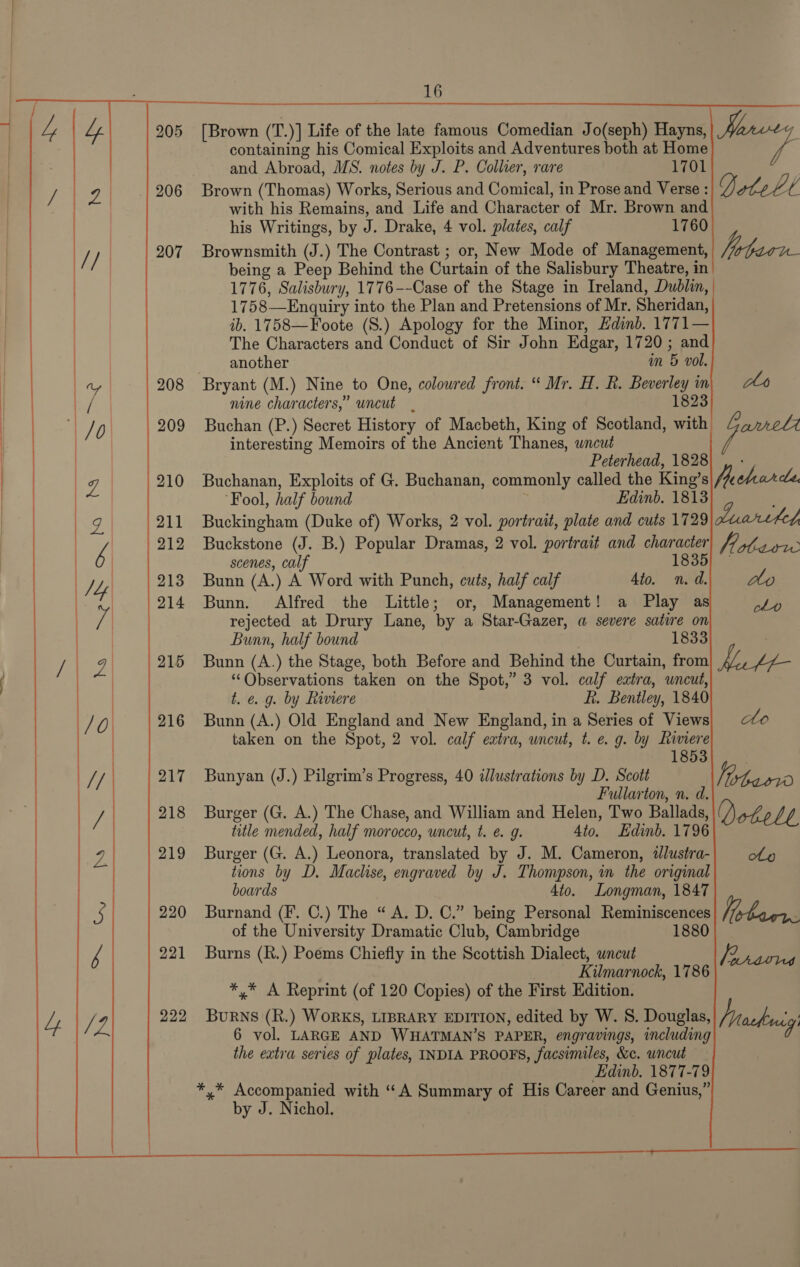 16
4 4 205 [Brown (T.)] Life of the late famous Comedian Jo(seph) Hayns, Harvey
containing his Comical Exploits and Adventures both at Home
and Abroad, MS. notes by J. P. Collier, rare 1701
1 2 206 Brown (Thomas) Works, Serious and Comical, in Prose and Verse: Dobell
with his Remains, and Life and Character of Mr. Brown and
his Writings, by J. Drake, 4 vol. plates, calf 1760
11 207 Brownsmith (J.) The Contrast; or, New Mode of Management, Robson
being a Peep Behind the Curtain of the Salisbury Theatre, in
1776, Salisbury, 1776--Case of the Stage in Ireland, Dublin,
1758—Enquiry into the Plan and Pretensions of Mr. Sheridan,
ib. 1758—Foote (S.) Apology for the Minor, Edinb. 1771—
The Characters and Conduct of Sir John Edgar, 1720; and
another in 5 vol.
7 208 Bryant (M.) Nine to One, coloured front. “Mr. H. R. Beverley in do
nine characters,” uncut 1823
10 209 Buchan (P.) Secret History of Macbeth, King of Scotland, with Garrett
interesting Memoirs of the Ancient Thanes, uncut
Peterhead, 1828
2 210 Buchanan, Exploits of G. Buchanan, commonly called the King’s Richards
Fool, half bound Edinb. 1813
9 211 Buckingham (Duke of) Works, 2 vol. portrait, plate and cuts 1729 Quaritch
6 212 Buckstone (J. B.) Popular Dramas, 2 vol. portrait and character Robson
scenes, calf 1835
14 213 Bunn (A.) A Word with Punch, cuts, half calf 4to. n. d. do
7 214 Bunn. Alfred the Little; or, Management! a Play as do
rejected at Drury Lane, by a Star-Gazer, a severe satire on
Bunn, half bound 1833
1 2 215 Bunn (A.) the Stage, both Before and Behind the Curtain, from Hutt
“Observations taken on the Spot,” 3 vol. calf extra, uncut,
t. e. g. by Riviere R. Bentley, 1840
10 216 Bunn (A.) Old England and New England, in a Series of Views do
taken on the Spot, 2 vol. calf extra, uncut, t. e. g. by Riviere
1853
11 217 Bunyan (J.) Pilgrim’s Progress, 40 illustrations by D. Scott Robson
Fullarton, n. d.
1 218 Burger (G. A.) The Chase, and William and Helen, Two Ballads, Dobell
title mended, half morocco, uncut, t. e. g. 4to. Edinb. 1796
2 219 Burger (G. A.) Leonora, translated by J. M. Cameron, illustra- do
tions by D. Maclise, engraved by J. Thompson, in the original
boards 4to. Longman, 1847
3 220 Burnand (F. C.) The “A. D. C.” being Personal Reminiscences Robson
of the University Dramatic Club, Cambridge 1880
6 221 Burns (R.) Poems Chiefly in the Scottish Dialect, uncut Parsons
Kilmarnock, 1786
*** A Reprint (of 120 Copies) of the First Edition.
4 12 222 BURNS (R.) WORKS, LIBRARY EDITION, edited by W. S. Douglas,
6 vol. LARGE AND WHATMAN’S PAPER, engravings, including
the extra series of plates, INDIA PROOFS, facsimiles, &c. uncut
Edinb. 1877-79
*** Accompanied with “A Summary of His Career and Genius,”
by J. Nichol.